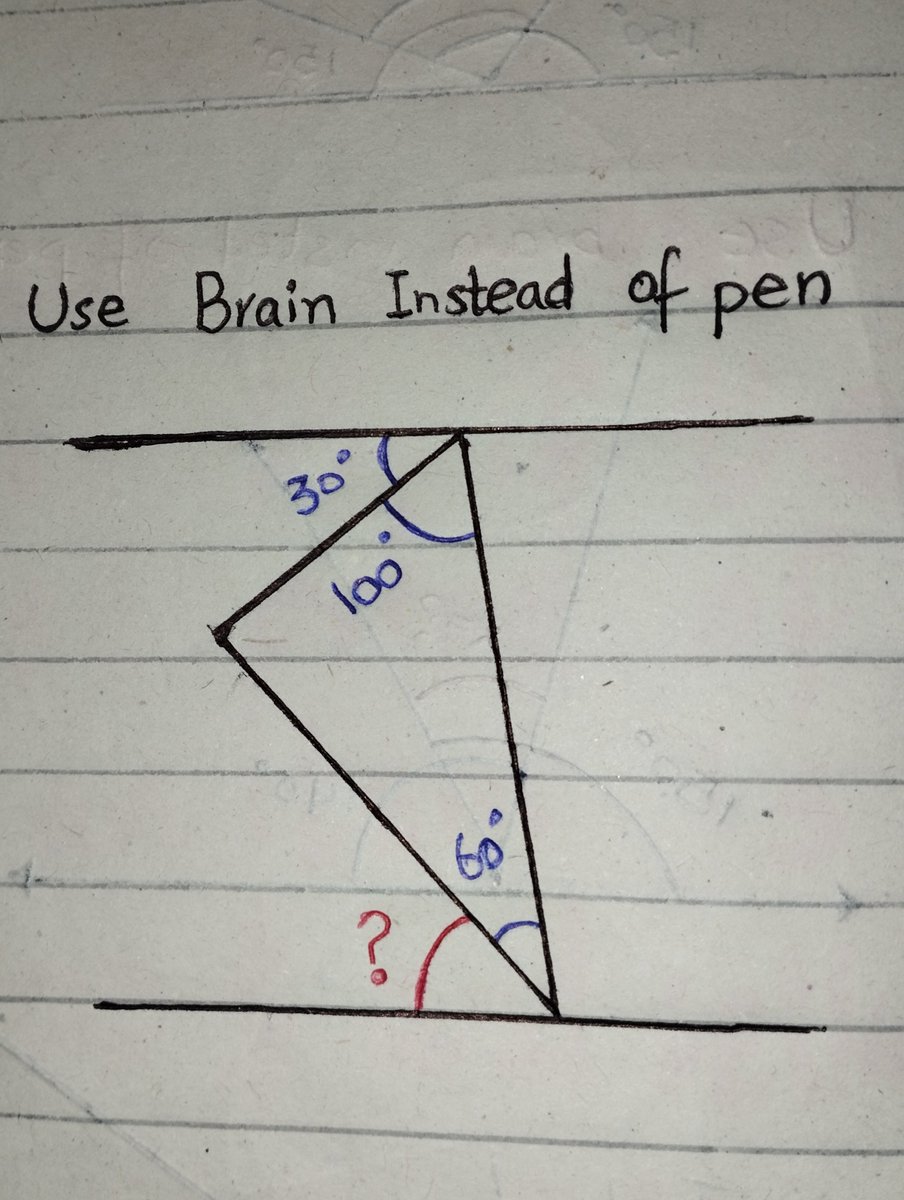 Use Brain Instead of pen
30°
100°
60°
?